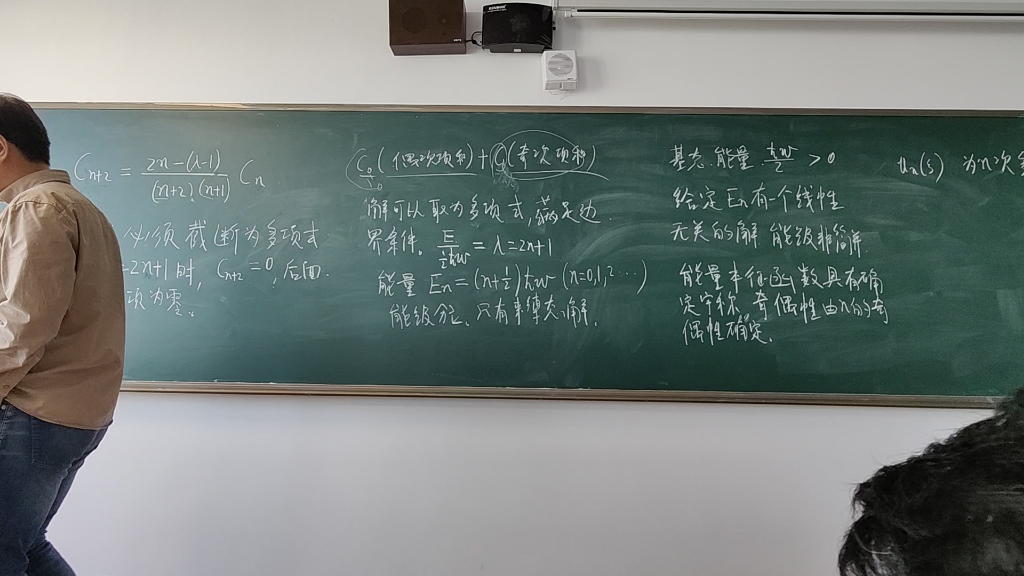 C_{n+2} = \frac{2n-(λ-1)}{(n+2)(n+1)} C_n
必须截断为多项式
=2n+1时, C_{n+2}=0, 后面
项为零。
C_0(偶次项和)+C_1(奇次项和)
解可以取为多项式,满足边
界条件。\frac{E}{\frac{1}{2}ħω} = λ = 2n+1
能量 E_n = (n+\frac{1}{2})ħω (n=0,1,2…)
能级分立、只有束缚态解.
基态能量 \frac{ħω}{2} > 0
给定 E_n 有一个线性
无关的解 能级非简并
能量本征函数具有确
定宇称, 奇偶性由n的奇
偶性确定.
u_n(ξ) 为n次